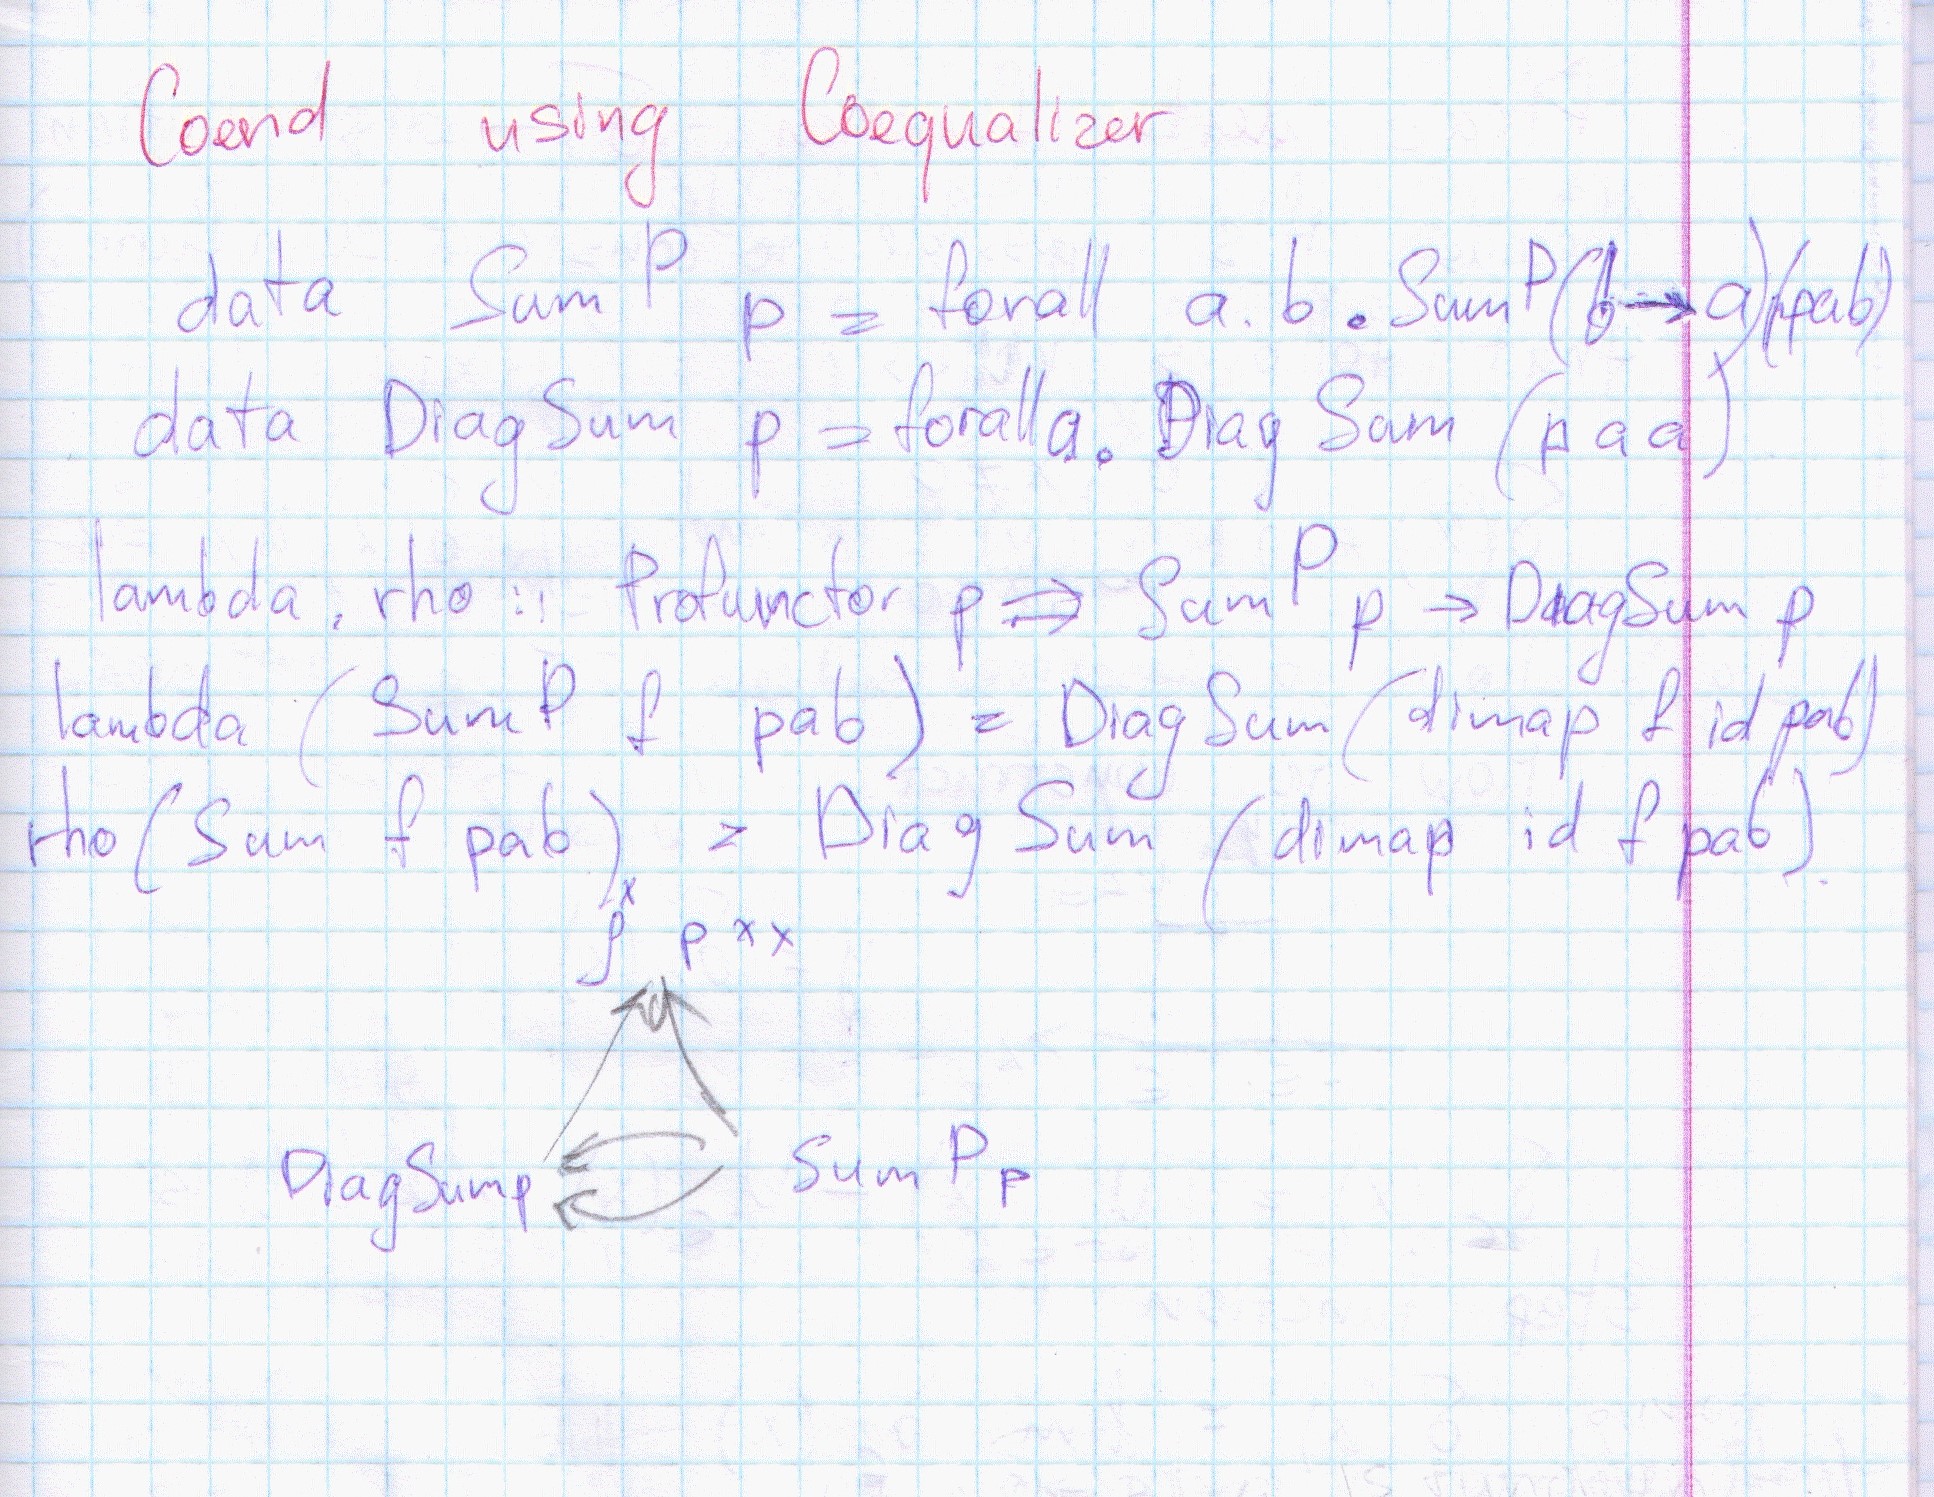 Coend using Coequalizer
data SumP p = forall a.b. SumP (b → a) (pab)
data DiagSum p = forall a. DiagSum (p a a)
lambda, rho :: Profunctor p ⇒ SumP p → DiagSum p
lambda (SumP f pab) = DiagSum (dimap f id pab)
rho (Sum f pab) = DiagSum (dimap id f pab)
∫ˣ p x x
DiagSum p SumP p